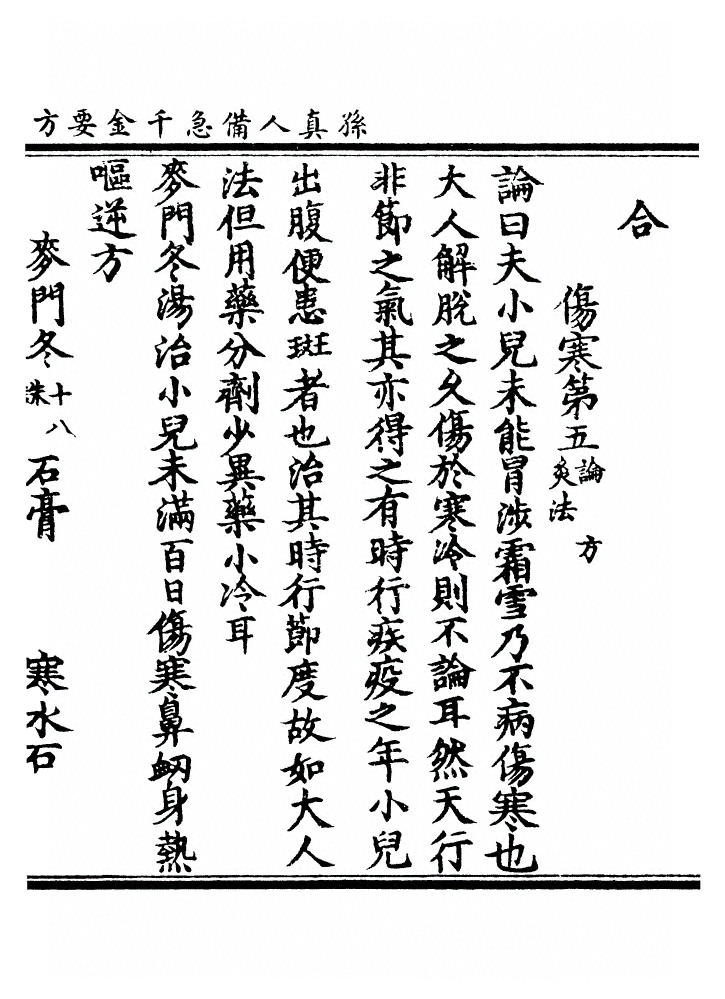 孫真人備急千金要方
合
傷寒第五論 方 灸法
論曰夫小兒未能冒涉霜雪乃不病傷寒也
大人解脫之久傷於寒冷則不論耳然天行
非節之氣其亦得之有時行疾疫之年小兒
出腹便患斑者也治其時行節度故如大人
法但用藥分劑少異藥小冷耳
麥門冬湯治小兒未滿百日傷寒鼻衂身熱
嘔逆方
麥門冬十八銖 石膏 寒水石